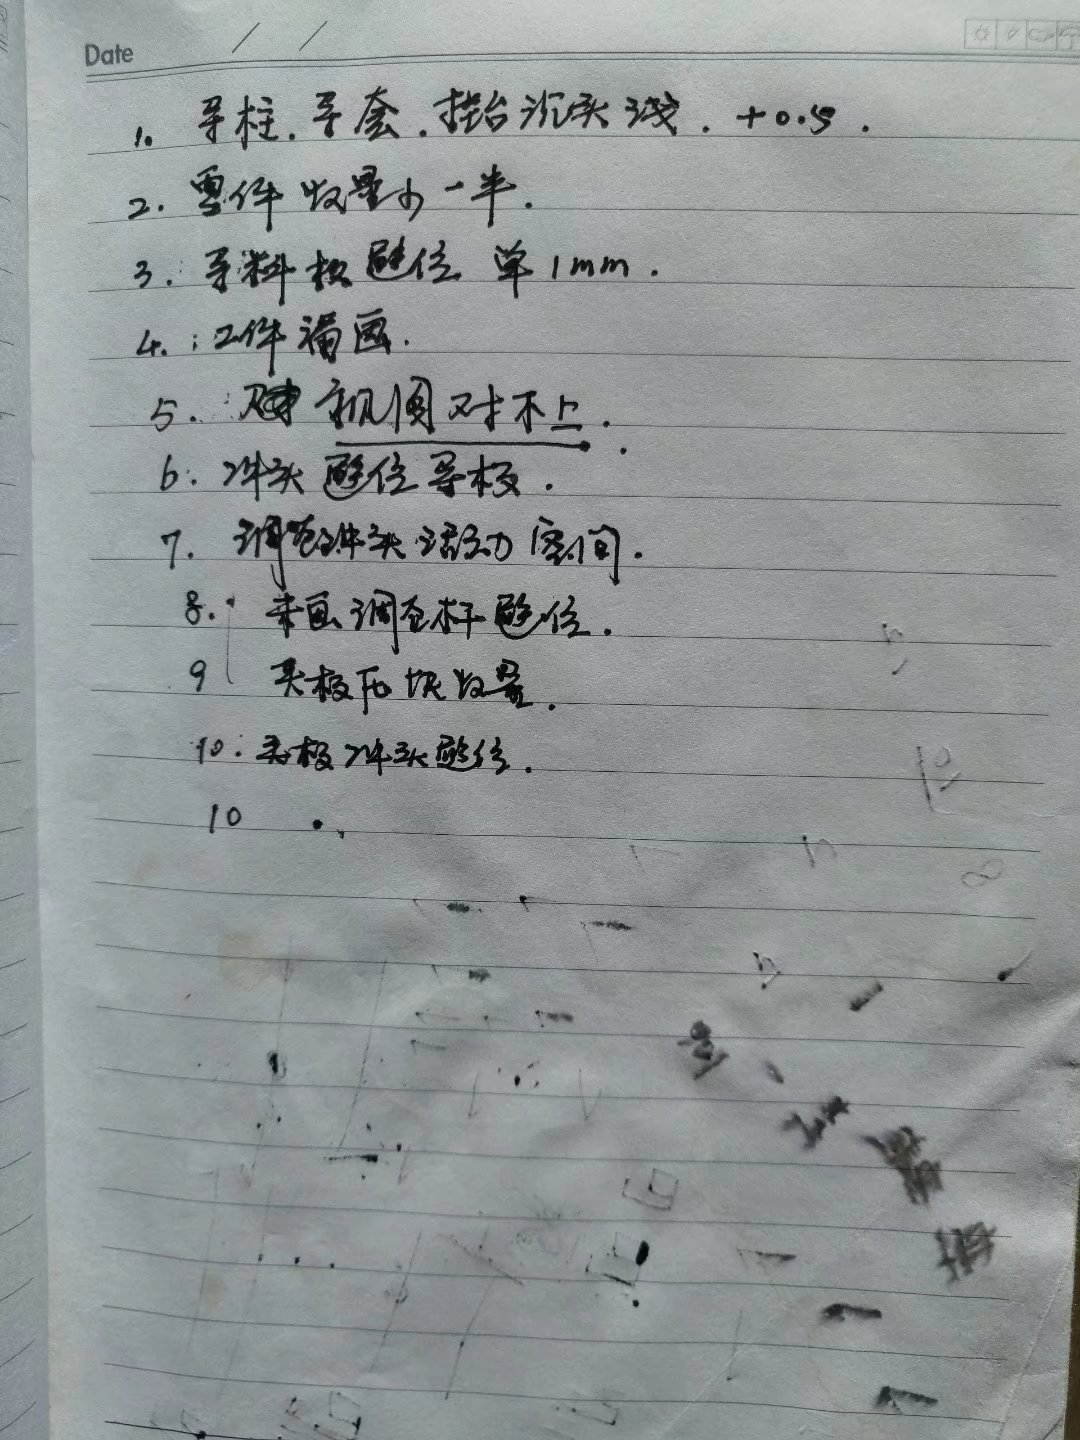 Date / /
1. 导柱. 导套. 挂台沉头浅. +0.5.
2. 零件数量少一半.
3. 导料板避位单1mm.
4. 工件漏画.
5. 视图对不上.
6. 冲头避位导板.
7. 调节冲头活动空间.
8. 未画调杆避位.
9 夹板压块数量.
10. 夹板冲头避位.
10